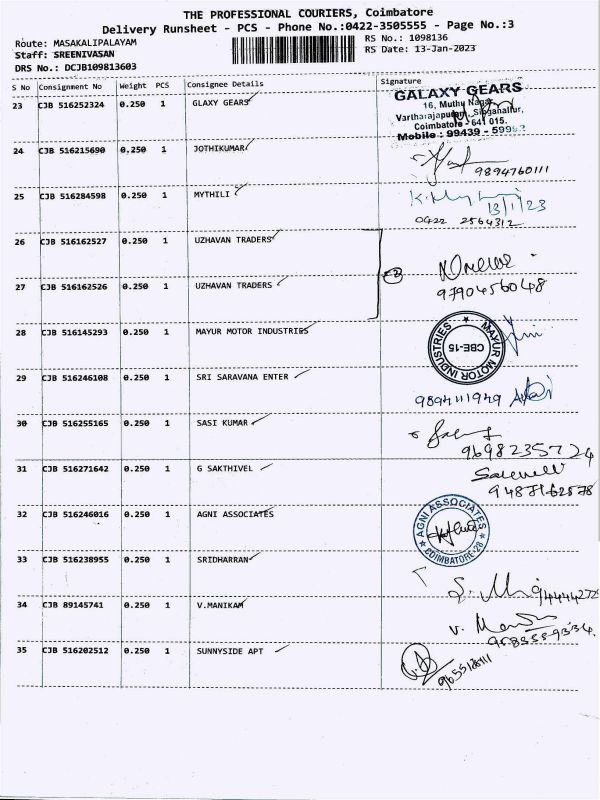 THE PROFESSIONAL COURIERS, Coimbatore
Delivery Runsheet - PCS - Phone No.:0422-3505555 - Page No.:3
Route: MASAKALIPALAYAM
Staff: SREENIVASAN
DRS No.: DCJB109813603
RS No.: 1098136
RS Date: 13-Jan-2023
S No Consignment No Weight PCS Consignee Details Signature
23 CJB 516252324 0.250 1 GLAXY GEARS
GALAXY GEARS
16, Muthu Nagar,
Vartharajapuram, Singanallur,
Coimbatore - 641 015.
Mobile : 99439 - 59963
24 CJB 516215690 0.250 1 JOTHIKUMAR
9894760111
25 CJB 516284598 0.250 1 MYTHILI
13/1/23
0422 2564312
26 CJB 516162527 0.250 1 UZHAVAN TRADERS
27 CJB 516162526 0.250 1 UZHAVAN TRADERS
9790456048
28 CJB 516145293 0.250 1 MAYUR MOTOR INDUSTRIES
MAYUR MOTOR INDUSTRIES
CBE-15
29 CJB 516246108 0.250 1 SRI SARAVANA ENTER
9894111949
30 CJB 516255165 0.250 1 SASI KUMAR
9698235724
31 CJB 516271642 0.250 1 G SAKTHIVEL
9487162578
32 CJB 516246016 0.250 1 AGNI ASSOCIATES
AGNI ASSOCIATES
COIMBATORE-28
33 CJB 516238955 0.250 1 SRIDHARRAN
34 CJB 89145741 0.250 1 V.MANIKAM
35 CJB 516202512 0.250 1 SUNNYSIDE APT